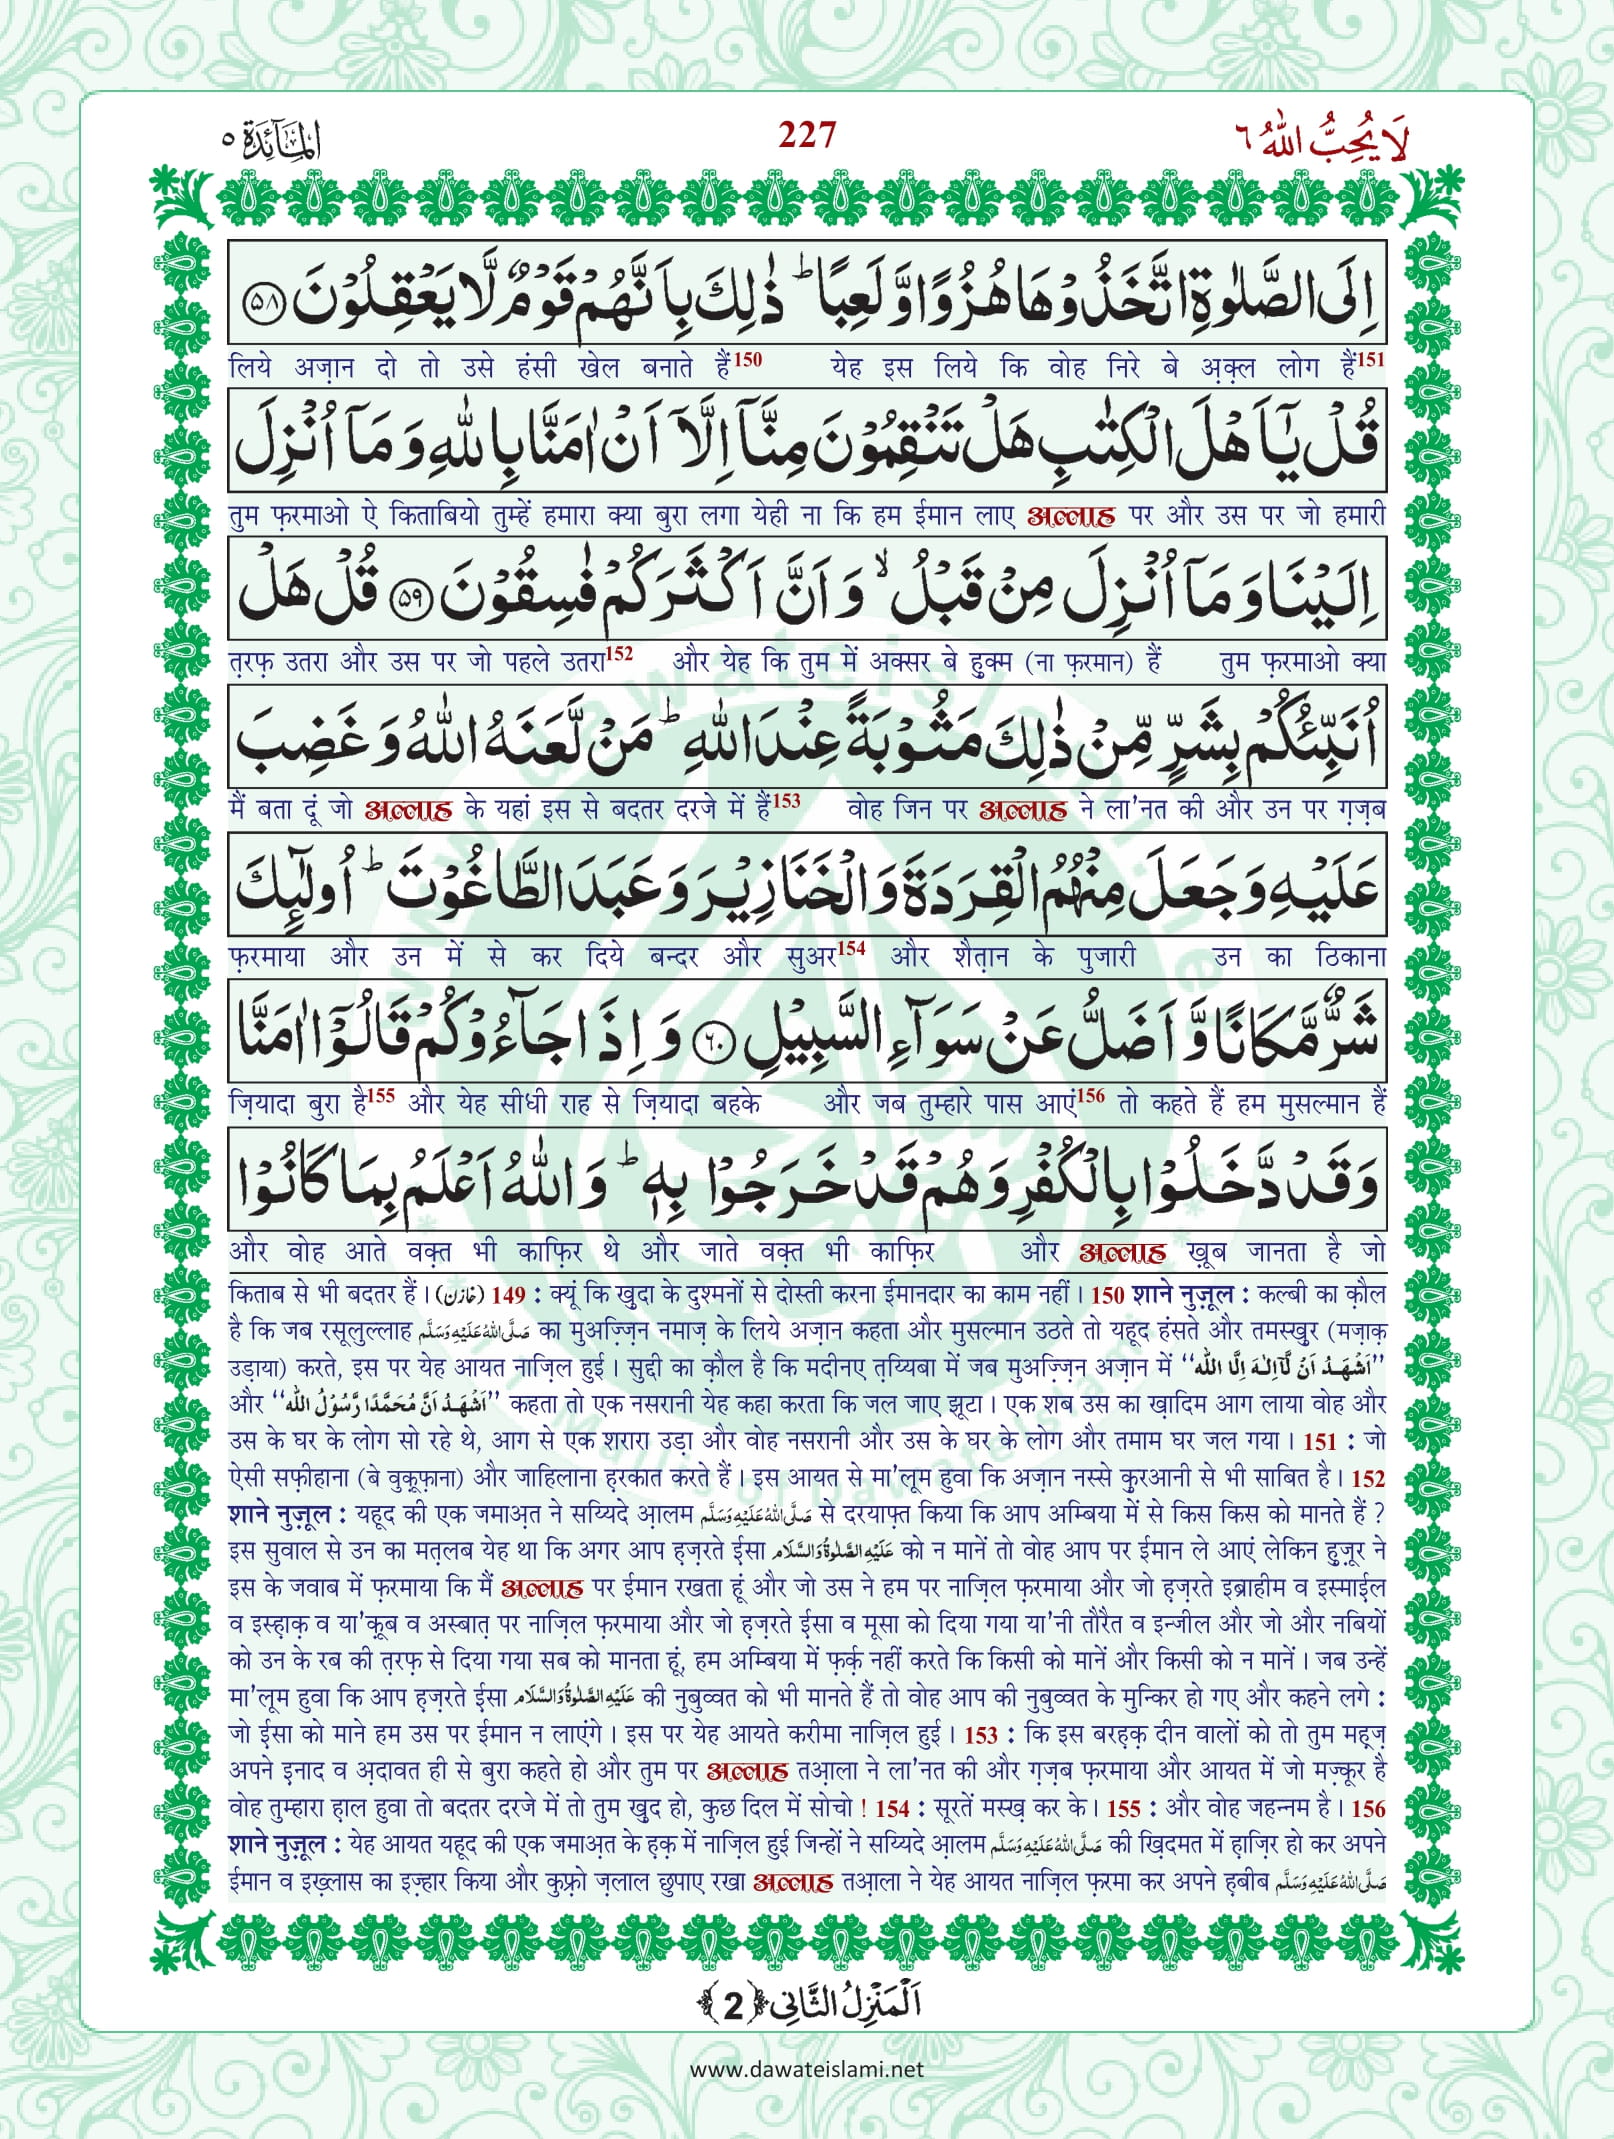 المآئدة ٥
227
لَا یُحِبُّ اللّٰہُ ٦
اِلَى الصَّلٰوةِ اتَّخَذُوْهَا هُزُوًا وَّ لَعِبًاؕ ذٰلِكَ بِاَنَّهُمْ قَوْمٌ لَّا یَعْقِلُوْنَ ﴿۵۸﴾
लिये अज़ान दो तो उसे हंसी खेल बनाते हैं150 येह इस लिये कि वोह निरे बे अ़क़्ल लोग हैं151
قُلْ یٰۤاَهْلَ الْكِتٰبِ هَلْ تَنْقِمُوْنَ مِنَّاۤ اِلَّاۤ اَنْ اٰمَنَّا بِاللّٰهِ وَ مَاۤ اُنْزِلَ
तुम फ़रमाओ ऐ किताबियो तुम्हें हमारा क्या बुरा लगा येही ना कि हम ईमान लाए अल्लाह पर और उस पर जो हमारी
اِلَیْنَا وَ مَاۤ اُنْزِلَ مِنْ قَبْلُۙ وَ اَنَّ اَكْثَرَكُمْ فٰسِقُوْنَ ﴿۵۹﴾ قُلْ هَلْ
त़रफ़ उतरा और उस पर जो पहले उतरा152 और येह कि तुम में अक्सर बे हुक्म (ना फ़रमान) हैं तुम फ़रमाओ क्या
اُنَبِّئُكُمْ بِشَرٍّ مِّنْ ذٰلِكَ مَثُوْبَةً عِنْدَ اللّٰهِؕ مَنْ لَّعَنَهُ اللّٰهُ وَ غَضِبَ
मैं बता दूं जो अल्लाह के यहां इस से बदतर दरजे में हैं153 वोह जिन पर अल्लाह ने ला'नत की और उन पर ग़ज़ब
عَلَیْهِ وَ جَعَلَ مِنْهُمُ الْقِرَدَةَ وَ الْخَنَازِیْرَ وَ عَبَدَ الطَّاغُوْتَؕ اُولٰٓىٕكَ
फ़रमाया और उन में से कर दिये बन्दर और सुअर154 और शैत़ान के पुजारी उन का ठिकाना
شَرٌّ مَّكَانًا وَّ اَضَلُّ عَنْ سَوَآءِ السَّبِیْلِ ﴿۶۰﴾ وَ اِذَا جَآءُوْكُمْ قَالُوْۤا اٰمَنَّا
ज़ियादा बुरा है155 और येह सीधी राह से ज़ियादा बहके और जब तुम्हारे पास आएं156 तो कहते हैं हम मुसल्मान हैं
وَ قَدْ دَّخَلُوْا بِالْكُفْرِ وَ هُمْ قَدْ خَرَجُوْا بِهٖؕ وَ اللّٰهُ اَعْلَمُ بِمَا كَانُوْا
और वोह आते वक़्त भी काफ़िर थे और जाते वक़्त भी काफ़िर और अल्लाह ख़ूब जानता है जो
किताब से भी बदतर हैं। (خازن) 149 : क्यूं कि ख़ुदा के दुश्मनों से दोस्ती करना ईमानदार का काम नहीं। 150 शाने नुज़ूल : कल्बी का क़ौल
है कि जब रसूलुल्लाह صَلَّی اللہُ عَلَیْہِ وَسَلَّم का मुअज़्ज़िन नमाज़ के लिये अज़ान कहता और मुसल्मान उठते तो यहूद हंसते और तमस्ख़ुर (मज़ाक़
उड़ाया) करते, इस पर येह आयत नाज़िल हुई। सुद्दी का क़ौल है कि मदीनए त़य्यिबा में जब मुअज़्ज़िन अज़ान में ‘‘اَشْهَدُ اَنْ لَّآ اِلٰهَ اِلَّا اللّٰه’’
और ‘‘اَشْهَدُ اَنَّ مُحَمَّدًا رَّسُوْلُ اللّٰه’’ कहता तो एक नसरानी येह कहा करता कि जल जाए झूटा। एक शब उस का ख़ादिम आग लाया वोह और
उस के घर के लोग सो रहे थे, आग से एक शरारा उड़ा और वोह नसरानी और उस के घर के लोग और तमाम घर जल गया। 151 : जो
ऐसी सफ़ीहाना (बे वुक़ूफ़ाना) और जाहिलाना ह़रकात करते हैं। इस आयत से मा'लूम हुवा कि अज़ान नस्से क़ुरआनी से भी साबित है। 152
शाने नुज़ूल : यहूद की एक जमाअ़त ने सय्यिदे आ़लम صَلَّی اللہُ عَلَیْہِ وَسَلَّم से दरयाफ़्त किया कि आप अम्बिया में से किस किस को मानते हैं ?
इस सुवाल से उन का मत़लब येह था कि अगर आप ह़ज़रते ईसा عَلَیْہِ الصَّلٰوۃُ وَالسَّلَام को न मानें तो वोह आप पर ईमान ले आएं लेकिन हुज़ूर ने
इस के जवाब में फ़रमाया कि मैं अल्लाह पर ईमान रखता हूं और जो उस ने हम पर नाज़िल फ़रमाया और जो ह़ज़रते इब्राहीम व इस्माईल
व इस्ह़ाक़ व या'क़ूब व अस्बात़ पर नाज़िल फ़रमाया और जो ह़ज़रते ईसा व मूसा को दिया गया या'नी तौरैत व इन्जील और जो और नबियों
को उन के रब की त़रफ़ से दिया गया सब को मानता हूं, हम अम्बिया में फ़र्क़ नहीं करते कि किसी को मानें और किसी को न मानें। जब उन्हें
मा'लूम हुवा कि आप ह़ज़रते ईसा عَلَیْہِ الصَّلٰوۃُ وَالسَّلَام की नुबुव्वत को भी मानते हैं तो वोह आप की नुबुव्वत के मुन्किर हो गए और कहने लगे :
जो ईसा को माने हम उस पर ईमान न लाएंगे। इस पर येह आयते करीमा नाज़िल हुई। 153 : कि इस बरह़क़ दीन वालों को तो तुम मह़्ज़
अपने इनाद व अ़दावत ही से बुरा कहते हो और तुम पर अल्लाह तआ़ला ने ला'नत की और ग़ज़ब फ़रमाया और आयत में जो मज़्कूर है
वोह तुम्हारा ह़ाल हुवा तो बदतर दरजे में तो तुम ख़ुद हो, कुछ दिल में सोचो ! 154 : सूरतें मस्ख़ कर के। 155 : और वोह जहन्नम है। 156
शाने नुज़ूल : येह आयत यहूद की एक जमाअ़त के ह़क़ में नाज़िल हुई जिन्हों ने सय्यिदे आ़लम صَلَّی اللہُ عَلَیْہِ وَسَلَّم की ख़िदमत में ह़ाज़िर हो कर अपने
ईमान व इख़्लास का इज़्हार किया और कुफ़्रो ज़लाल छुपाए रखा अल्लाह तआ़ला ने येह आयत नाज़िल फ़रमा कर अपने ह़बीब صَلَّی اللہُ عَلَیْہِ وَسَلَّم
اَلْمَنْزِلُ الثَّانِی ﴿2﴾
www.dawateislami.net